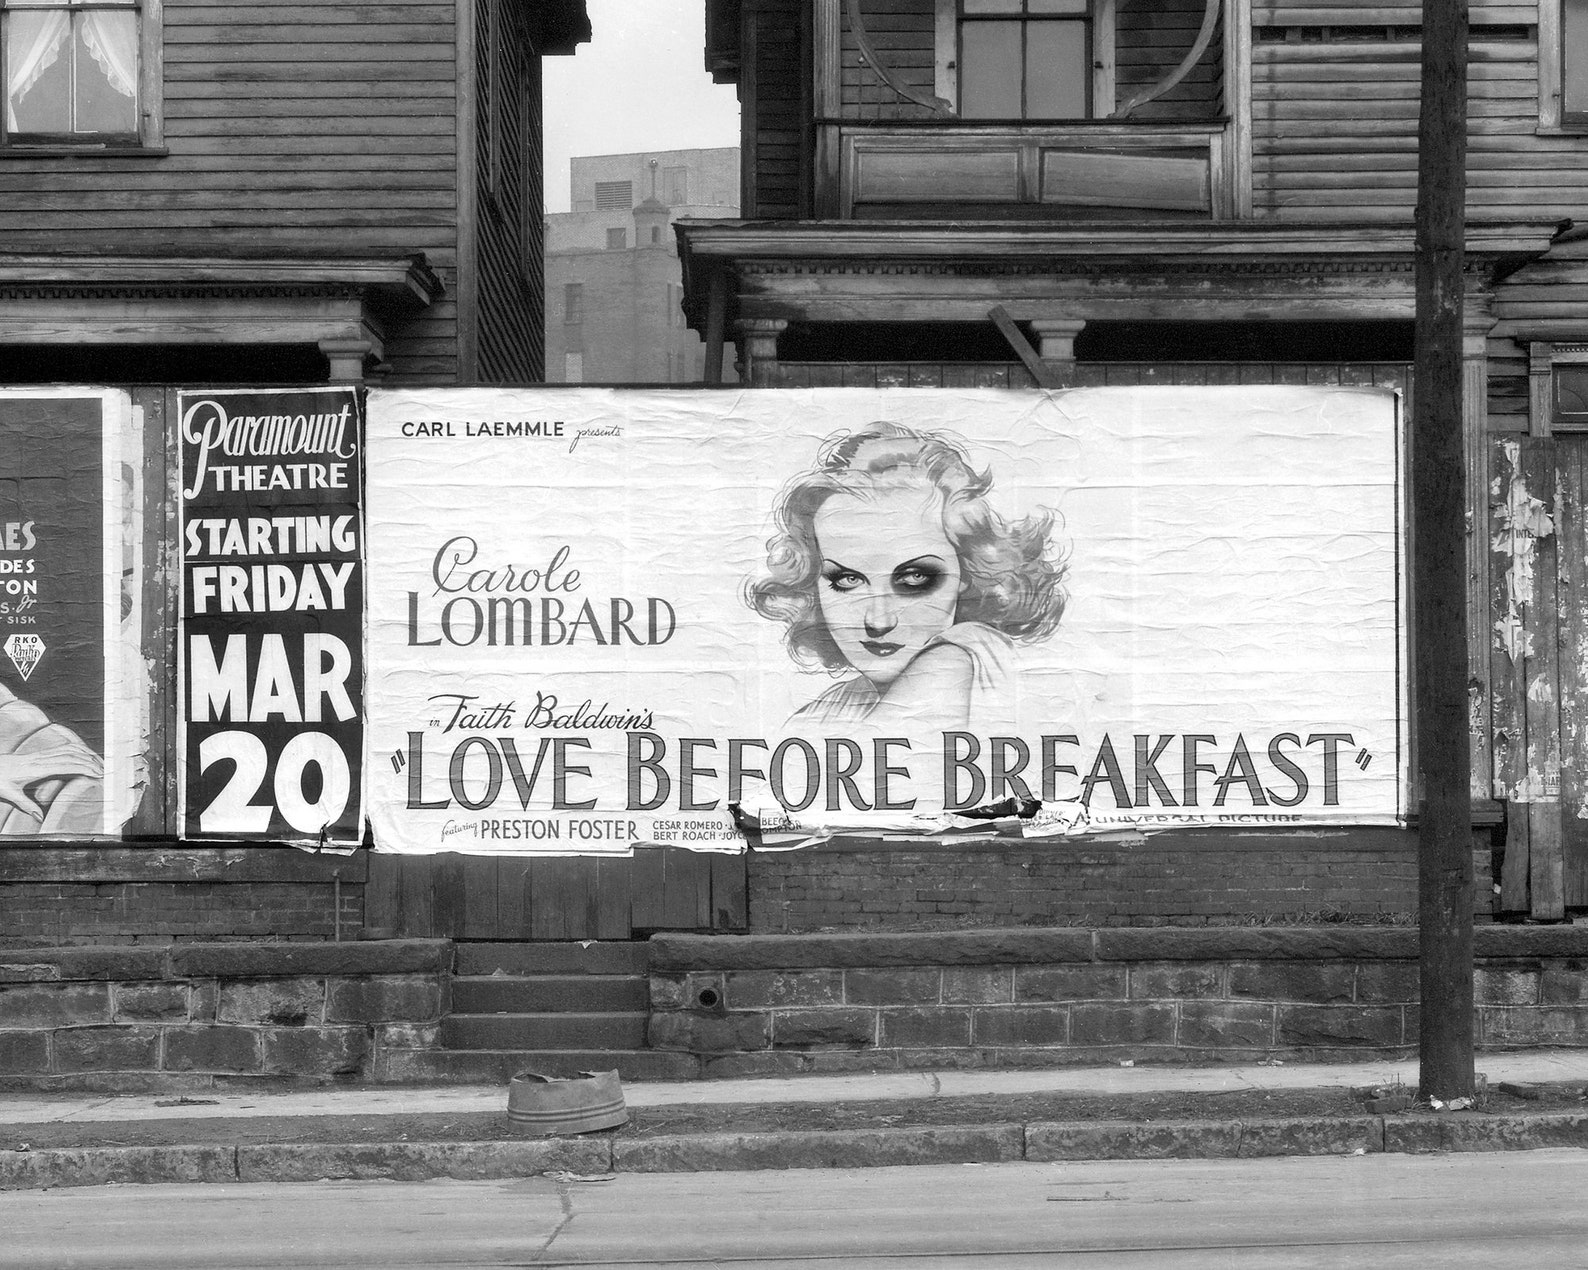 AES
DES
TON
S. Jr
T SISK
RKO
Radio
Paramount
THEATRE
STARTING
FRIDAY
MAR
20
CARL LAEMMLE presents
Carole
LOMBARD
in Faith Baldwin's
"LOVE BEFORE BREAKFAST"
featuring PRESTON FOSTER
CESAR ROMERO
BERT ROACH · JOYC
A UNIVERSAL PICTURE